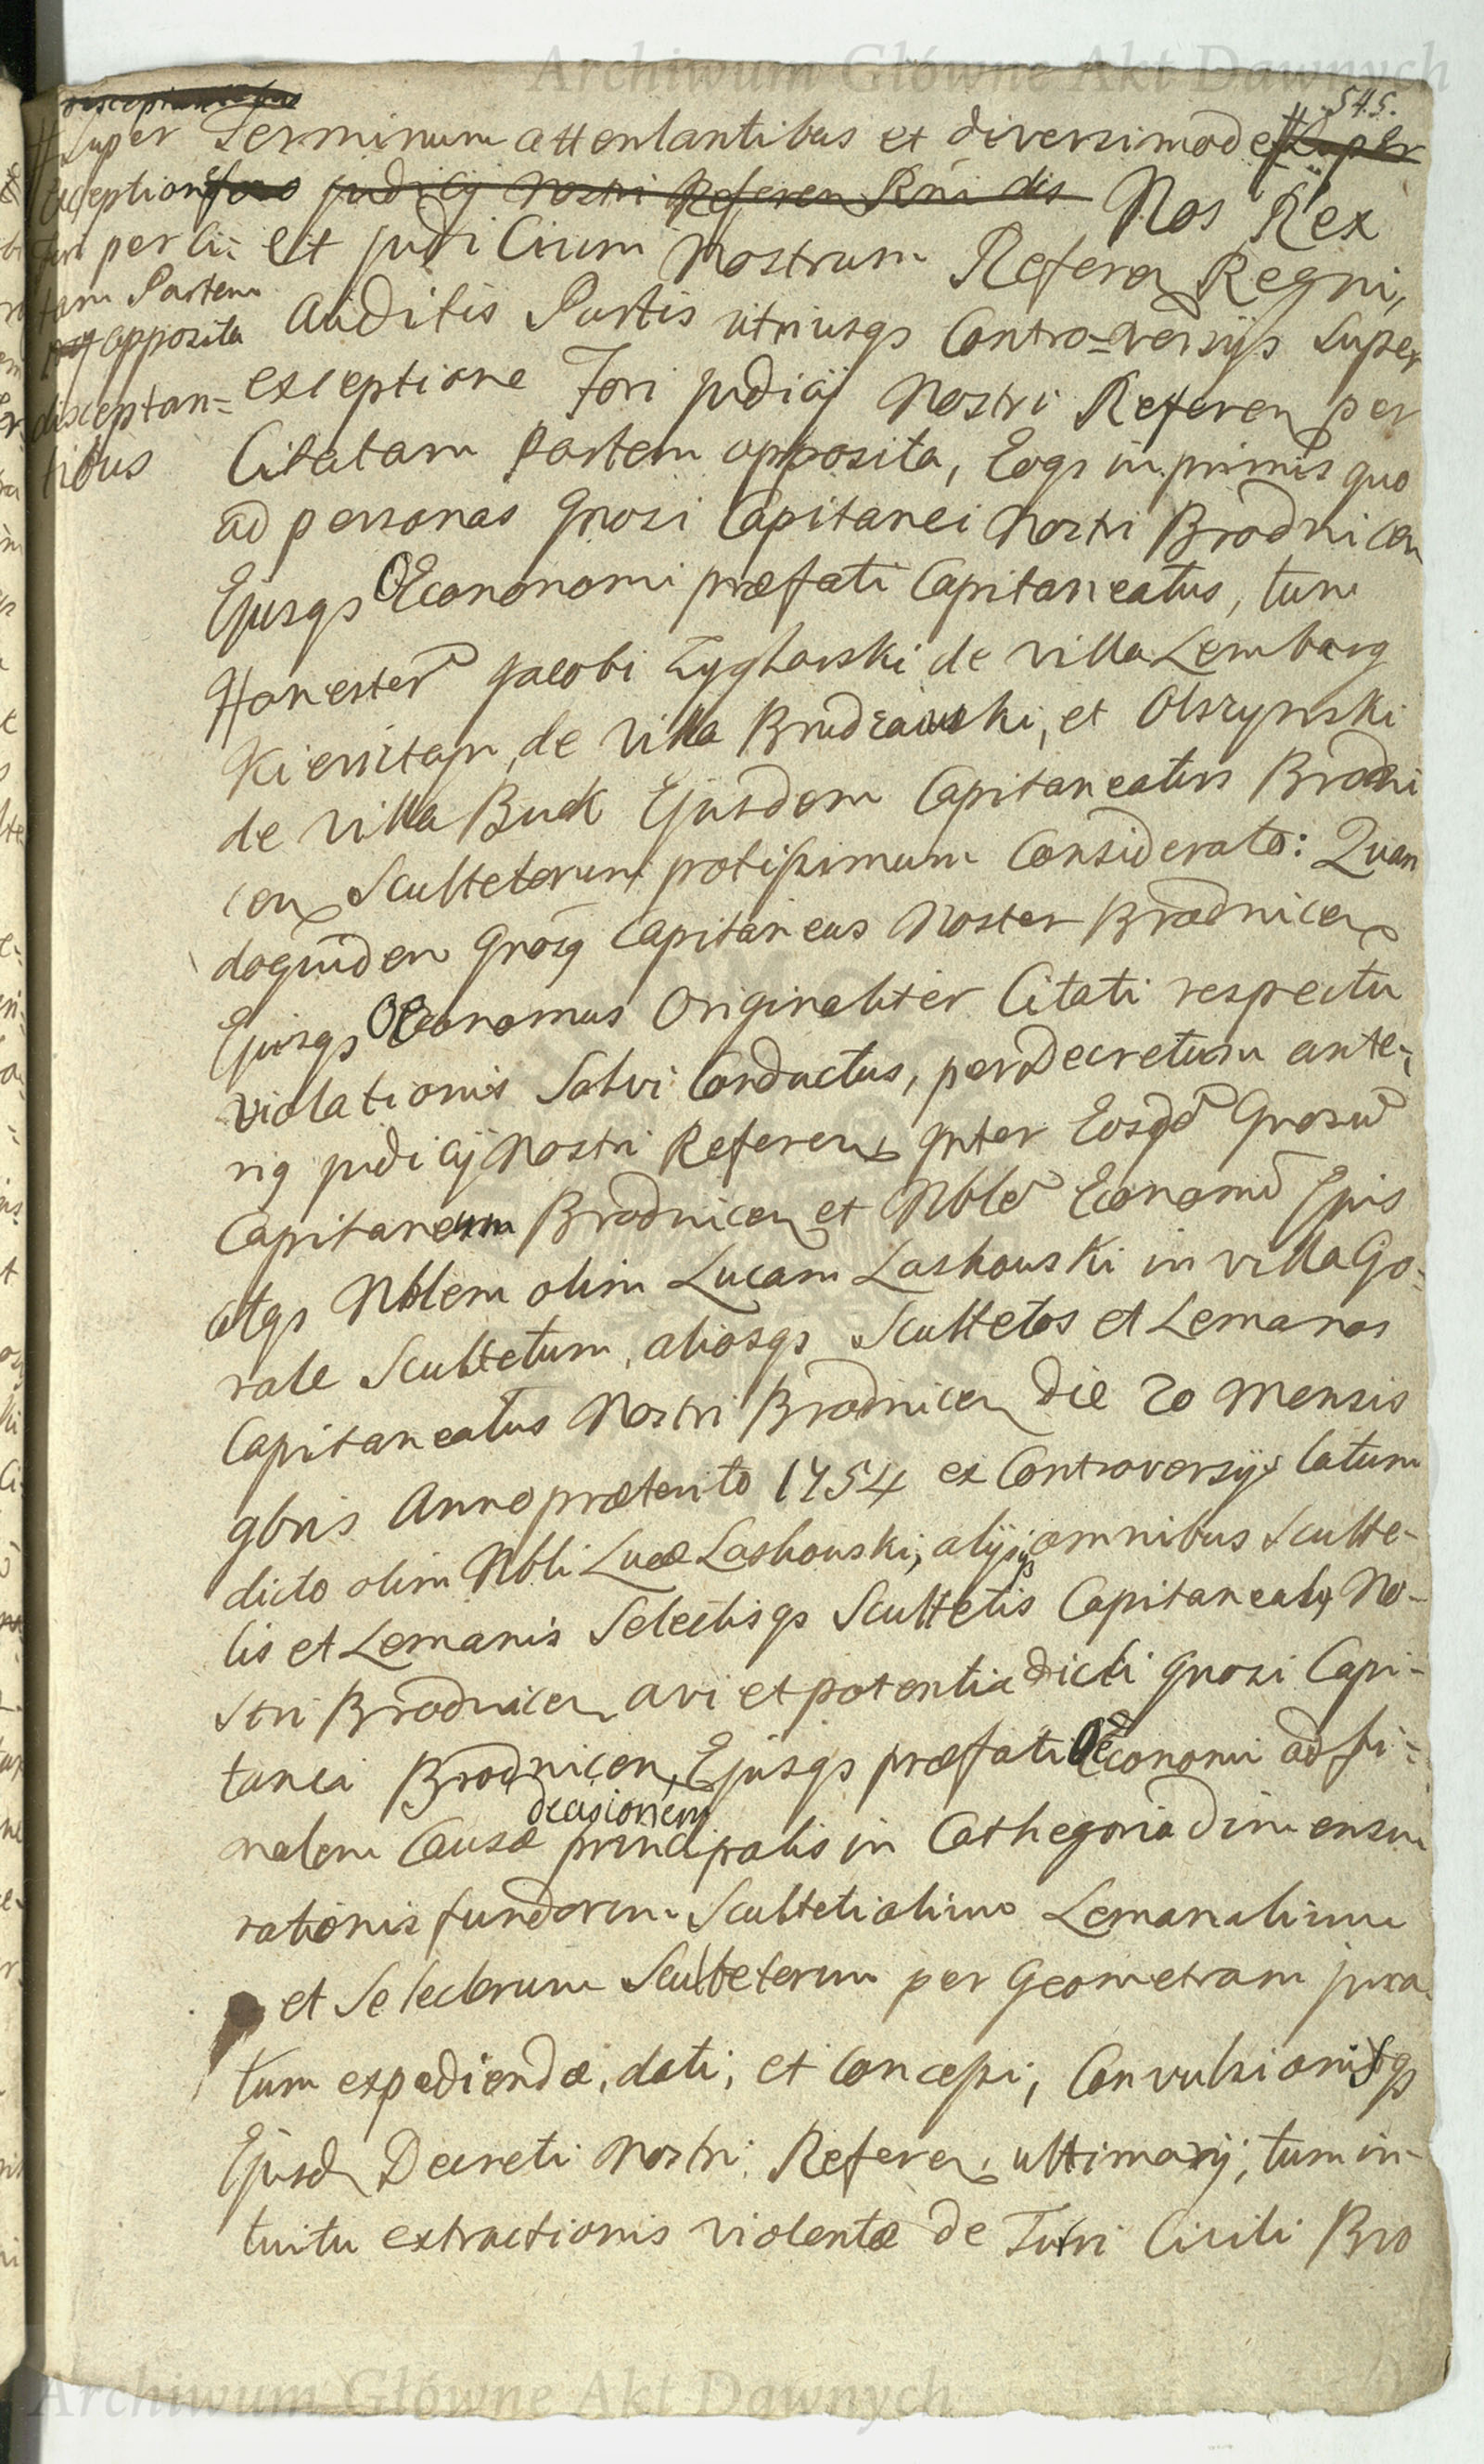 Archiwum Główne Akt Dawnych
545.
# Super
exception
fori per Ci=
tam Partem
opposita
disceptan=
tibus
Terminum attentantibus et diversimode # Super
fori judicij Nostri Referen Rni dis Nos Rex
et judicium Nostrum Referen Regni,
auditis Partis utriusqs Contro=versijs super
exceptione Fori judicij Nostri Referen per
Citatam Partem opposita, Eoqs in primis quo
ad personas Gnosi Capitanei Nostri Brodnicen
Ejusqs OEconomi præfati Capitaneatus, tum
Honester Jacobi Zyglarski de villa Lemberg
de Villa Brudzawski, et Olszynski
de villa Buck Ejusdem Capitaneatus Brodni
cen Scultetorum potissimum Considerato: Quan
doquidem Gnosq Capitaneus Noster Brodnicen
Ejusqs OEconomus Originaliter Citati respectu
violationis Salvi Conductus, per Decretum ante-
rig judicij Nostri Referen Inter Eosqd Gnosu
Capitaneum Brodnicen et Nble Economu Ejus
atqs Nblem olim Lucam Laskowski in villa Go-
rale Scultetum, aliosqs Scultetos et Lemanos
Capitaneatus Nostri Brodnicen die 20 mensis
9bris Anno præterito 1754 ex Controversijs latum
dicto olim Nbli Lucæ Laskowski, alijsqs omnibus Sculte-
tis et Lemanis Selectisqs Scultetis Capitaneatq No-
stri Brodnicen, avi et potentia dicti Gnosi Capi-
tanei Brodnicen, Ejusqs præfati OEconomi ad fi-
decisionem
nalem Causæ principalis in Cathegoria dimensu
rationis fundorum Scultetialium Lemanalium
et Selectorum Scultetorum per Geometram jura
tum expediendæ, dati, et Concessi, Convulsionisqs
Ejusd Decreti Nostri Referen ultimarij, tum in-
tuitu extractionis violentæ de Turri Civili Bro
Archiwum Główne Akt Dawnych